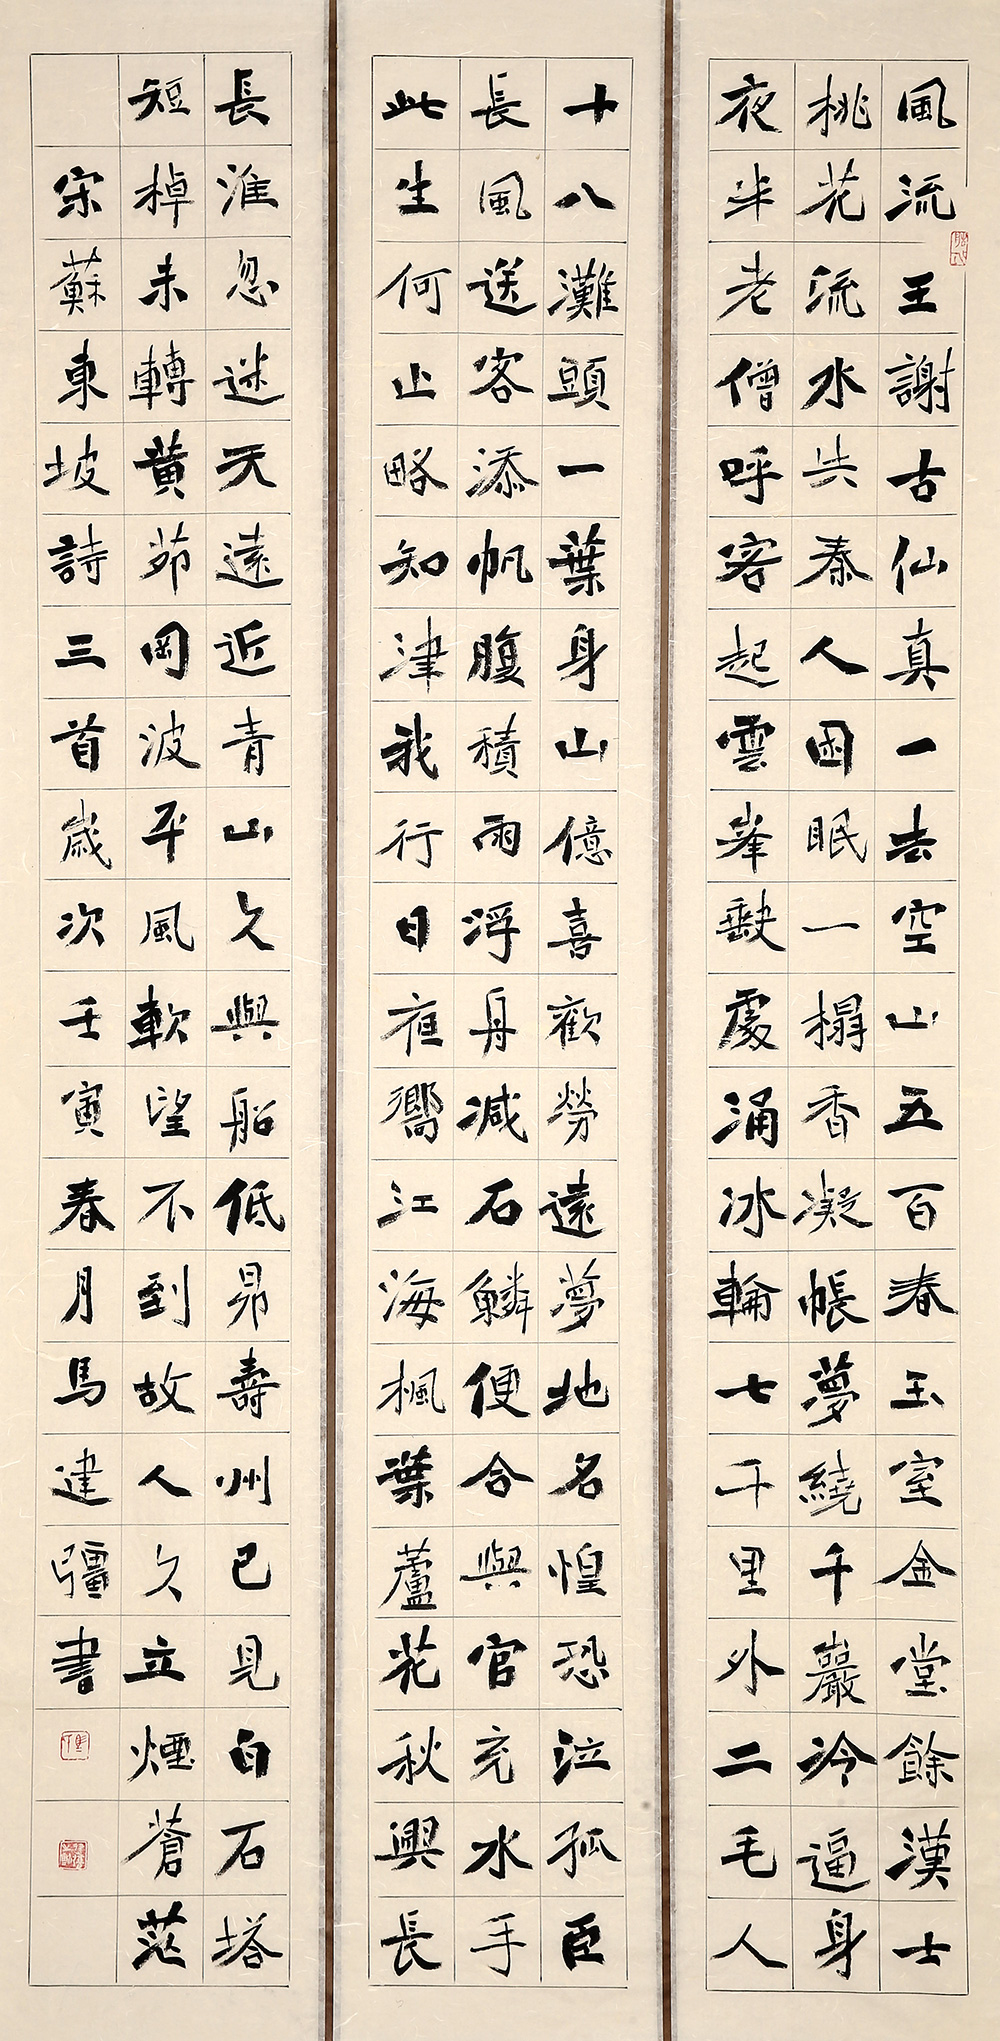 風流王謝古仙真一去空山五百春玉室金堂餘漢士
桃花流水共秦人困眠一榻香凝帳夢繞千巖冷逼身
夜半老僧呼客起雲峯缺處涌冰輪七千里外二毛人
十八灘頭一葉身山億喜歡勞遠夢地名惶恐泣孤臣
長風送客添帆腹積雨浮舟減石鱗便合與官充水手
此生何止略知津我行日夜嚮江海楓葉蘆花秋興長
長淮忽迷天遠近青山久與船低昂壽州已見白石塔
短棹未轉黃茆岡波平風軟望不到故人久立煙蒼茫
宋蘇東坡詩三首歲次壬寅春月馬建彊書